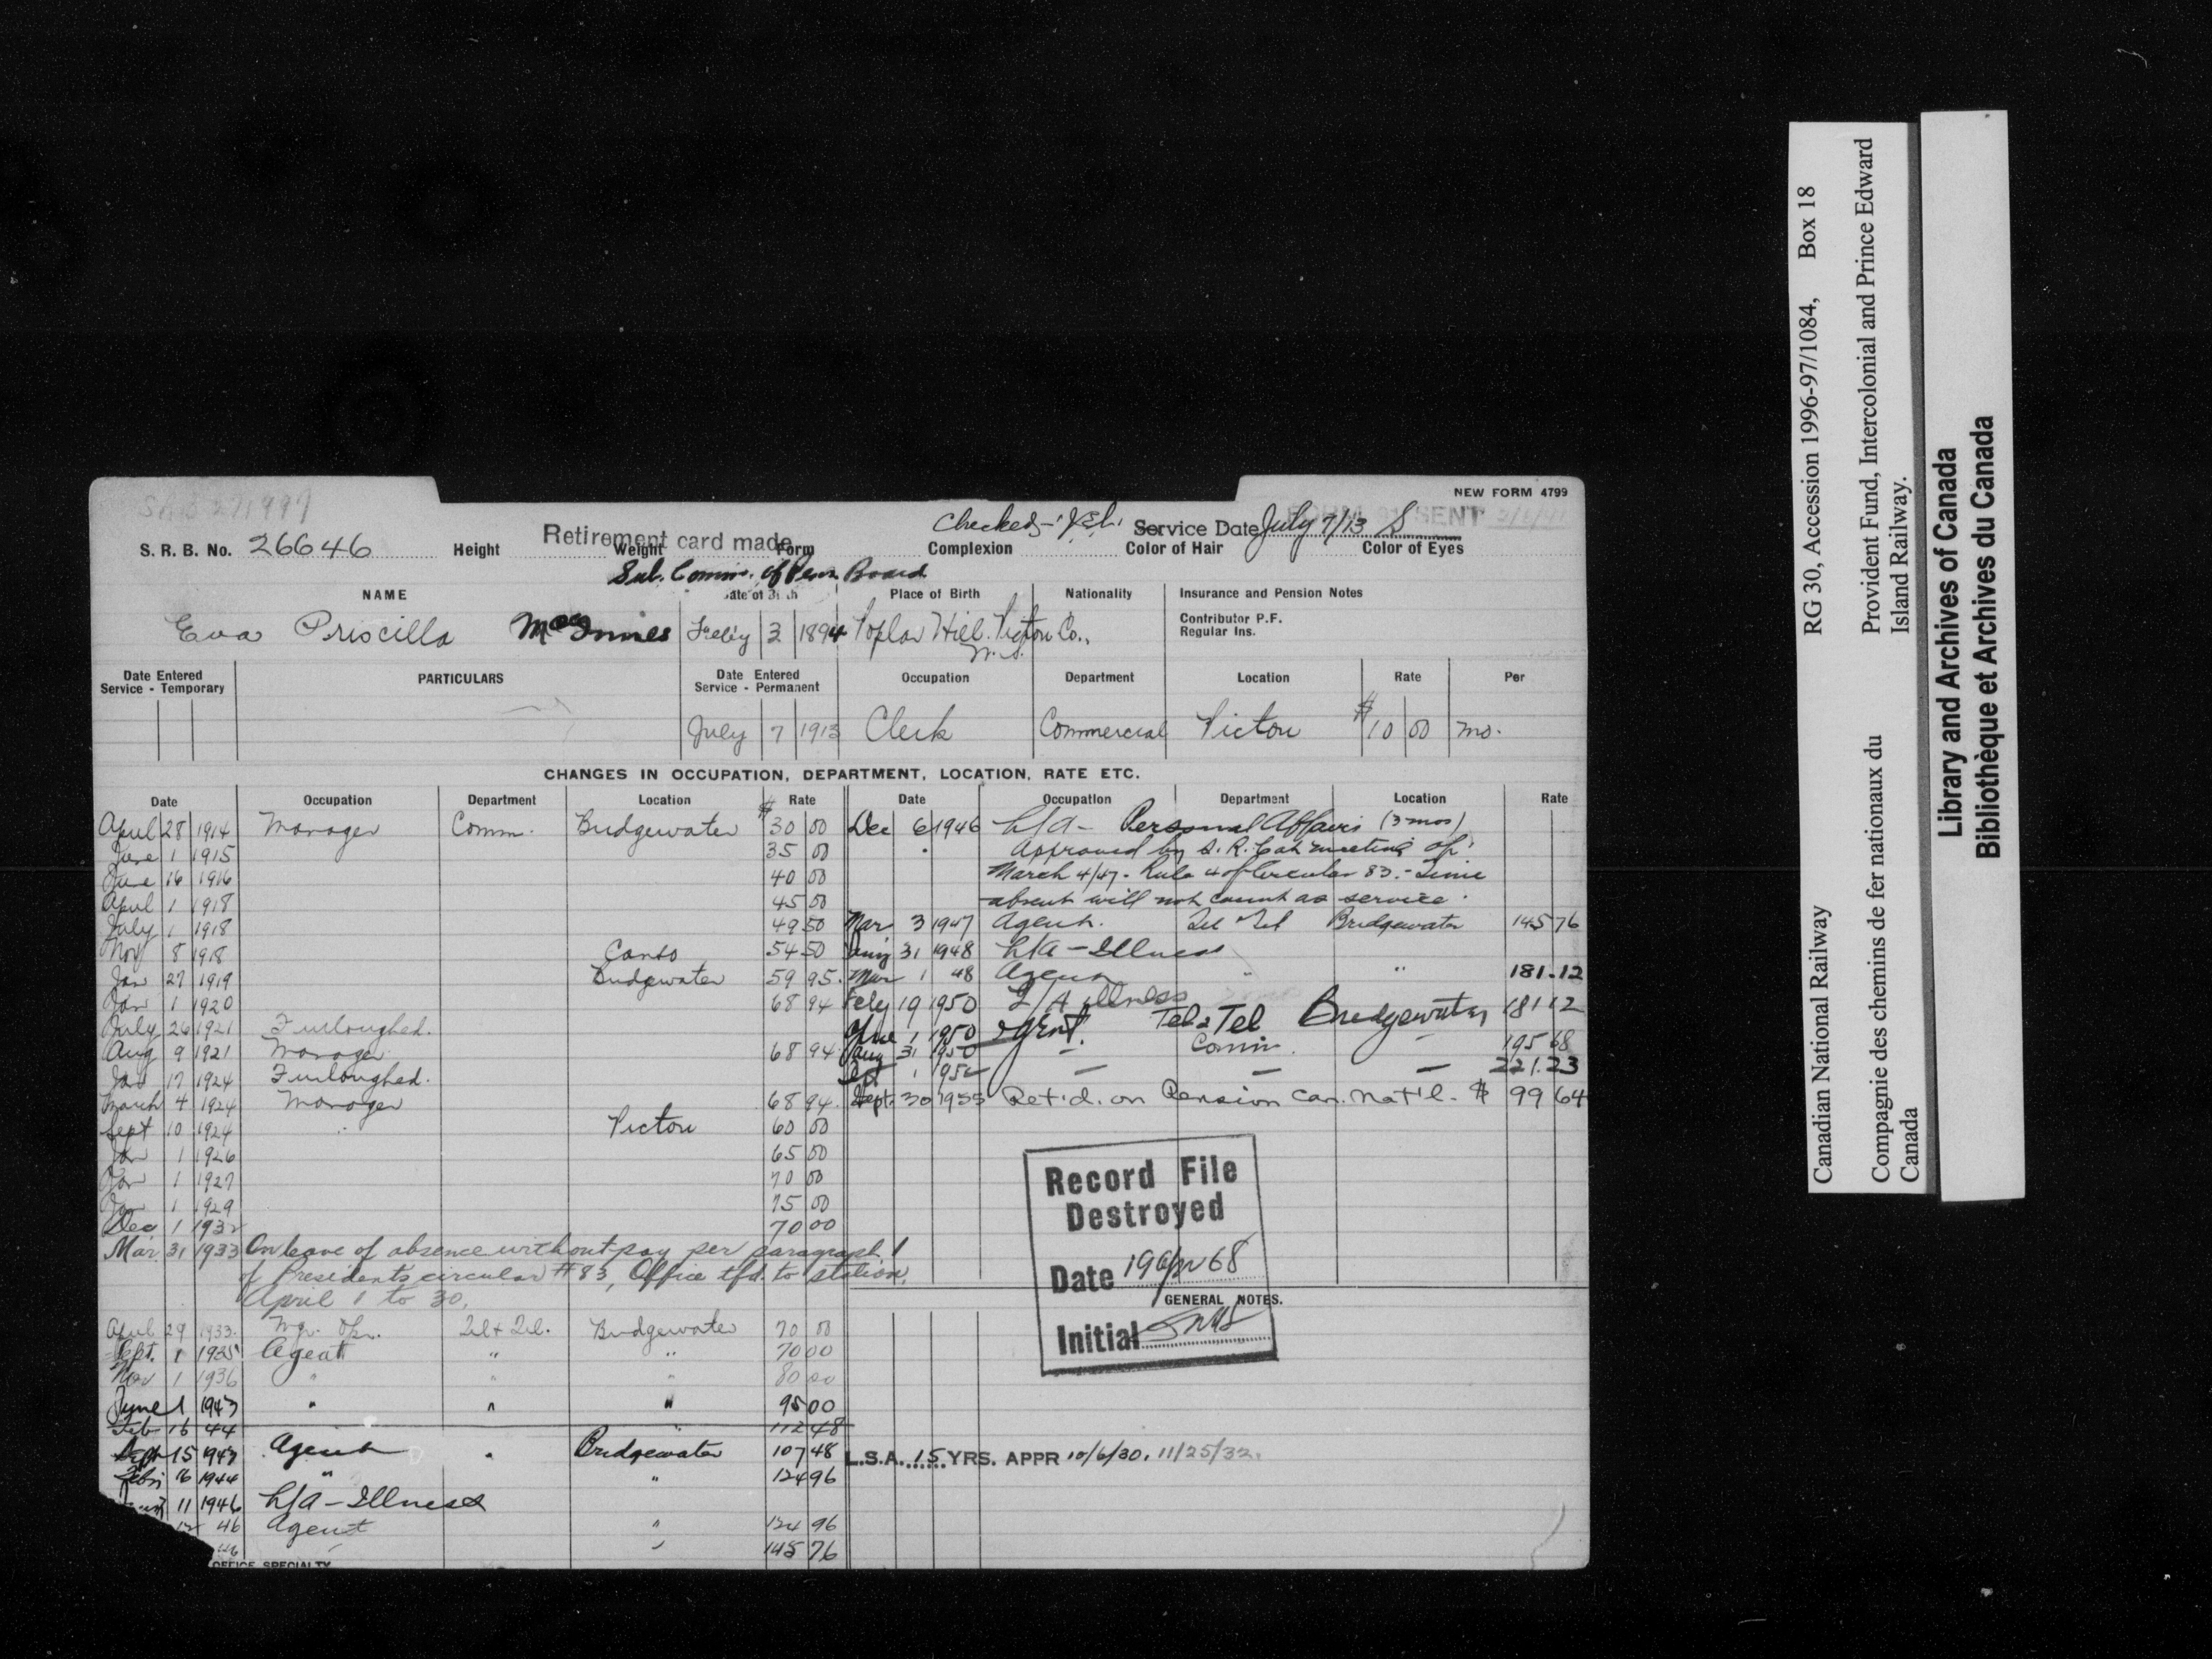 NEW FORM 4799
SRB 271997
Retirement card made
Checked
Service Date July 7/13 S
S. R. B. No. 26646 Height Weight Form Complexion Color of Hair Color of Eyes
Sub. Comm. of Pen Board
NAME Date of Birth Place of Birth Nationality Insurance and Pension Notes
Contributor P.F.
Regular Ins.
Eva Priscilla MacInnes Feb'y 3 1894 Poplar Hill. Pictou Co., N.S.
Date Entered Service - Temporary PARTICULARS Date Entered Service - Permanent Occupation Department Location Rate Per
July 7 1913 Clerk Commercial Pictou $10 00 mo.
CHANGES IN OCCUPATION, DEPARTMENT, LOCATION, RATE ETC.
Date Occupation Department Location Rate
April 28 1914 Manager Comm. Bridgewater $30 00
June 1 1915 35 00
June 16 1916 40 00
April 1 1918 45 00
July 1 1918 49 50
Nov 8 1918 Canso 54 50
Jan 27 1919 Bridgewater 59 95
Jan 1 1920 68 94
July 26 1921 Furloughed.
Aug 9 1921 Manager 68 94
Jan 17 1924 Furloughed.
March 4 1924 Manager 68 94
Sept 10 1924 Pictou 60 00
Jan 1 1926 65 00
Jan 1 1927 70 00
Jan 1 1929 75 00
Dec 1 1932 70 00
Mar 31 1933 On leave of absence without pay per paragraph 1
of President's circular #83, Office tfd. to station.
April 1 to 30.
April 29 1933 Mgr. Opr. Tel & Tel. Bridgewater 70 00
Sept. 1 1935 Agent " " 70 00
Nov 1 1936 " " " 80 00
June 1 1943 " " " 95 00
Feb 16 44 112 48
Sept 15 1943 Agent " Bridgewater 107 48
Feb 16 1944 " " 124 96
11 1946 L/A - Illness
12 46 Agent " 124 96
46 " 145 76
OFFICE SPECIALTY
Date Occupation Department Location Rate
Dec 6 1946 L/A - Personal Affairs (3 mos)
Approved by S. R. meeting of
March 4/47. Rule 4 of Circular 83. - Time
absent will not count as service.
Mar 3 1947 Agent. Tel & Tel Bridgewater 145 76
31 1948 L/A - Illness
Mar 1 48 Agent " " 181.12
Feby 19 1950 L/A illness
June 1 1950 Agent. Tel & Tel Bridgewater 181 12
Aug 31 1950 — Comm. — 195 68
1 1952 — — — 221.23
Sept. 30 1955 Ret'd. on Pension Can. Nat'l. $ 99 64
Record File
Destroyed
Date 19 Apr 68
GENERAL NOTES.
Initial
L.S.A. 15 YRS. APPR 10/6/30. 11/25/32.
Canadian National Railway RG 30, Accession 1996-97/1084, Box 18
Compagnie des chemins de fer nationaux du Canada
Provident Fund, Intercolonial and Prince Edward Island Railway.
Library and Archives of Canada
Bibliothèque et Archives du Canada